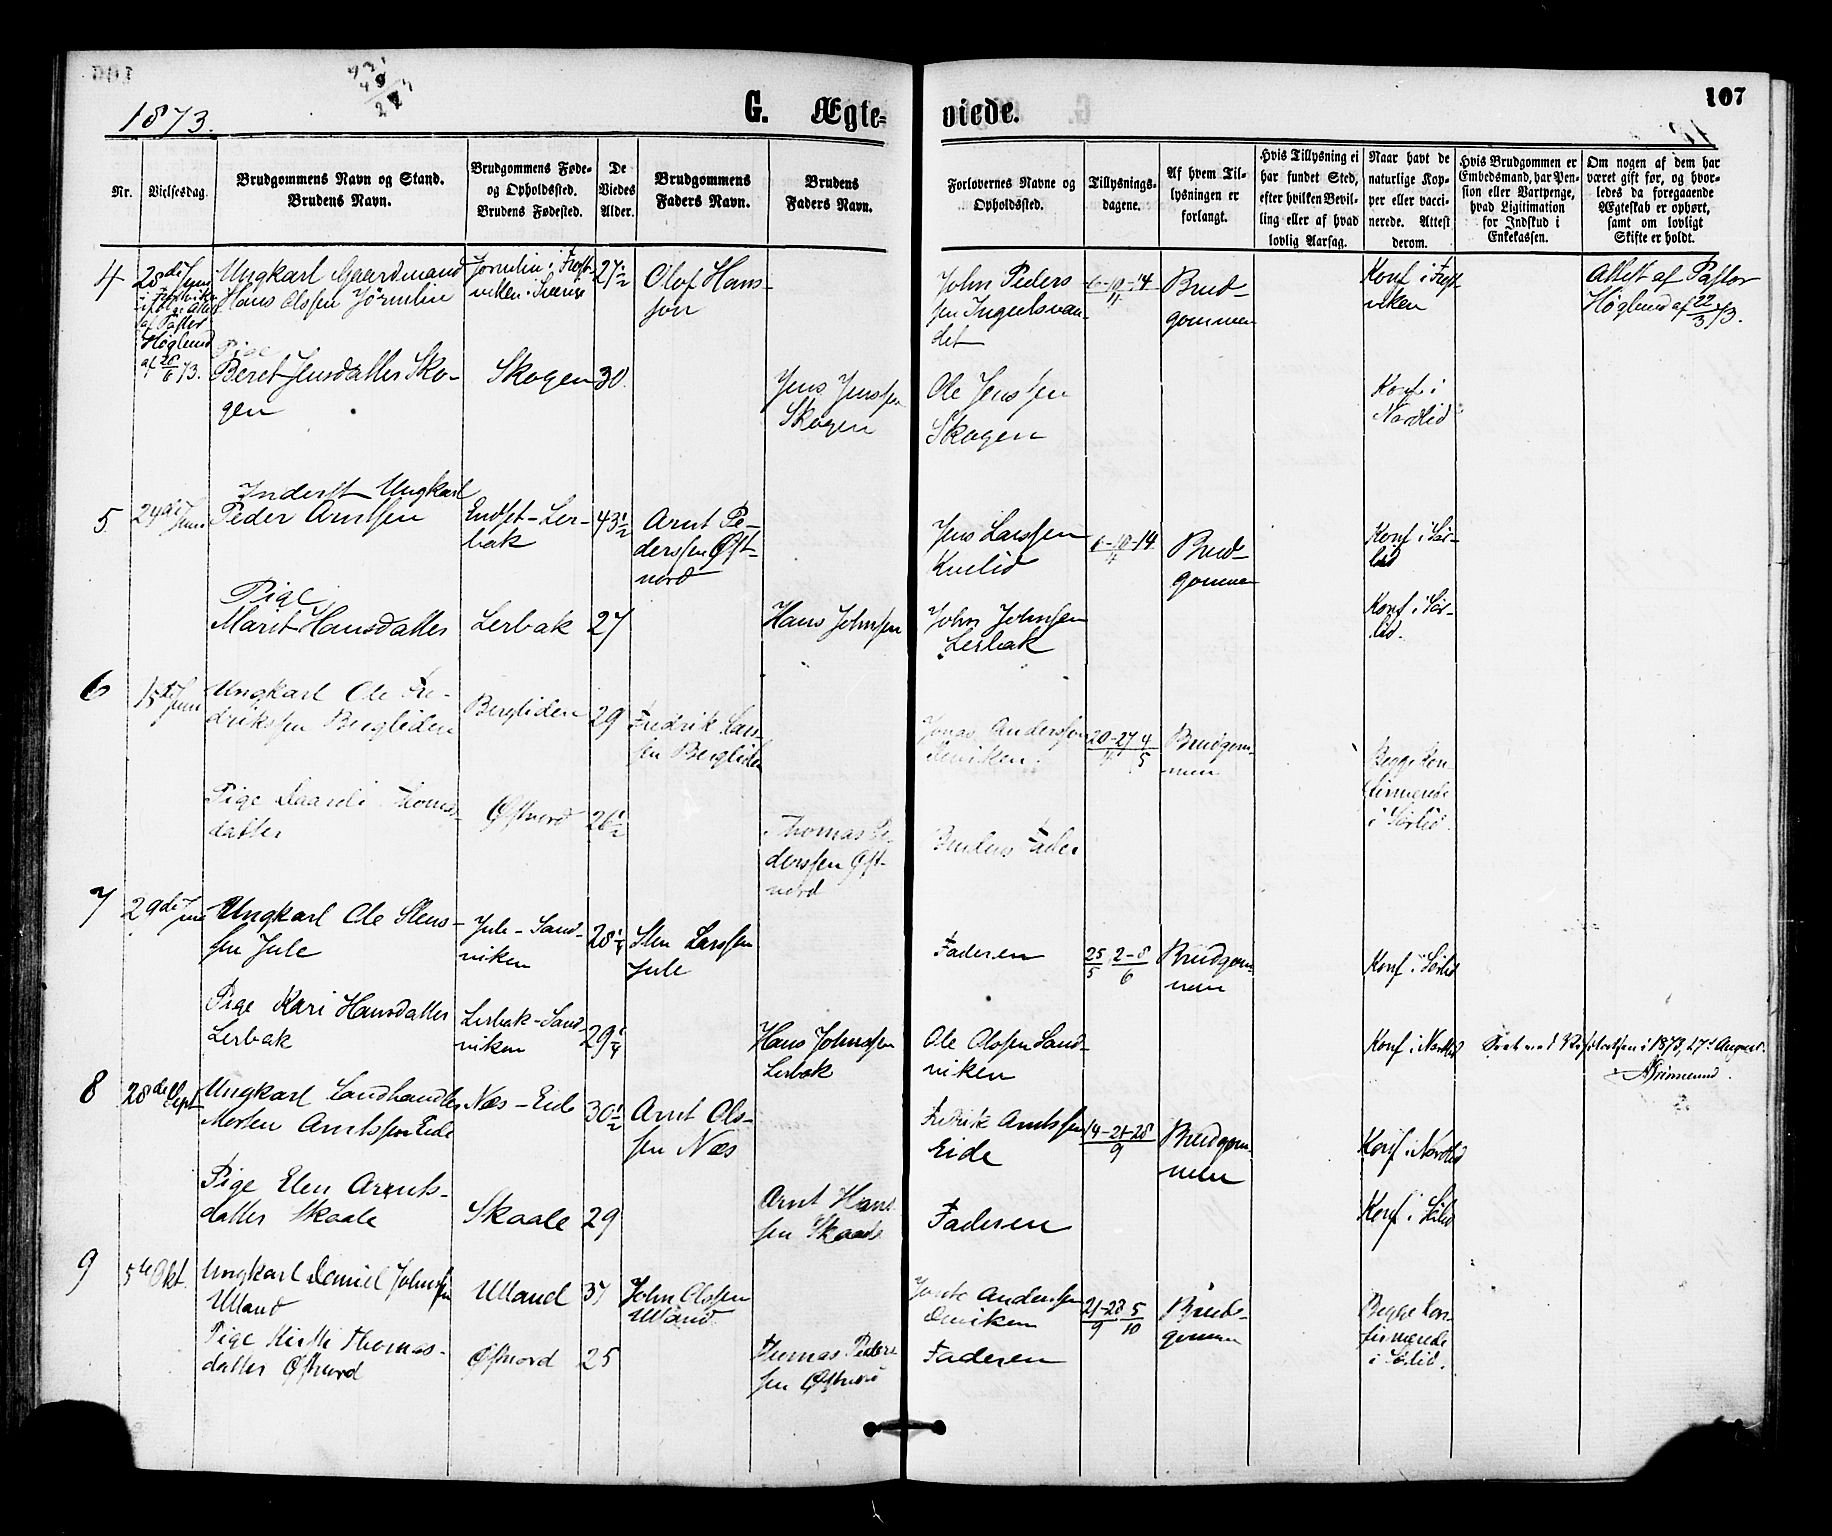 1873.
G. Ægte-
viede.
107
Nr.
Vielsesdag.
Brudgommens Navn og Stand.
Brudens Navn.
Brudgommens Føde-
og Opholdssted.
Brudens Fødested.
De
Viedes
Alder.
Brudgommens
Faders Navn.
Brudens
Faders Navn.
Forlovernes Navne og
Opholdssted.
Tillysnings-
dagene.
Af hvem Til-
lysningen er
forlangt.
Hvis Tillysning ei
har fundet Sted,
efter hvilken Bevil-
ling eller af hvad
lovlig Aarsag.
Naar havt de
naturlige Kop-
per eller vacci-
nerede. Attest
derom.
Hvis Brudgommen er
Embedsmand, har Pen-
sion eller Vartpenge,
hvad Ligitimation
for Indskud i
Enkekassen.
Om nogen af dem har
været gift før, og hvor-
ledes da foregaaende
Ægteskab er ophørt,
samt om lovligt
Skifte er holdt.
4
28de Juni
af Pastor
Høglund
af 28/6 73.
Ungkarl Gaardmand
Hans Olsen Jørmlin
Jormlin i Frost-
viken i Sverige
27 1/2
Olof Hans-
son
John Peders
sen Ingulsvan-
det
6-10-14/4
Brud-
gommen
Konf i Frost
viken
Attest af Pastor
Høglund af 22/3 73.
Pige
Beret Jensdatter Sko-
gen
Skogen
30
Jens Jenssen
Skogen
Ole Jenssen
Skogen
Konf i
Nordlid
5
24de Juni
Inderst Ungkarl
Peder Arntsen
Endset-Ler-
bak
43 1/2
Arnt Pe-
derssen Øst-
nord
Jens Larssen
Kvelid
6-10-14/4
Brud-
gommen
Konf i Sør-
lid
Pige
Marit Hansdatter
Lerbak
27
Hans Johnsen
John Johnsen
Lerbak
Konf i Sør-
lid.
6
15de Juni
Ungkarl Ole Fre-
driksen Bergliden
Bergliden
29
Fredrik Lars-
sen Bergliden
Jonas Anderssen
20-27/4 4/5
Brudgom-
men
Begge kon
firmerede
i Sørlid.
Pige
Thoms-
datter
Østnord
26 1/2
Thomas Pe-
derssen Øst-
nord
Brudens Fader
7
29de Juni
Ungkarl Ole Stens-
sen Jule
Jule-Sand-
viken
28 1/4
Sten Larssen
Jule
Faderen
25/5 2-8/6
Brudgom-
men
Konf i Sørlid
Pige Kari Hansdatter
Lerbak
Lerbak-Sand-
viken
29 1/4
Hans Johnssen
Lerbak
Ole Olssen Sand-
viken
Konf i Nordlid
i 1873, 27d August.
8
28de Sept
Ungkarl Landhandler
Morten Arntssen Eide
Næs-Eide
30 1/2
Arnt Ols-
sen Næs
Fredrik Arntssen
Eide
14-21-28/9
Brudgom-
men
Konf i Nordlid
Pige Elen Arents-
datter Skaale
Skaale
29
Arnt Hans
sen Skaale
Faderen
Konf i Sørlid
9
5te Okt.
Ungkarl Daniel Johnsen
Ulland
Ulland
37
John Olssen
Ulland
Anderssen
21-28/9 5/10
Brud-
gommen
Begge kon-
firmerede
i Sørlid.
Pige Kirsti Thomas-
datter Østnord
Østnord
25
Thomas Peders
sen Østnord
Faderen